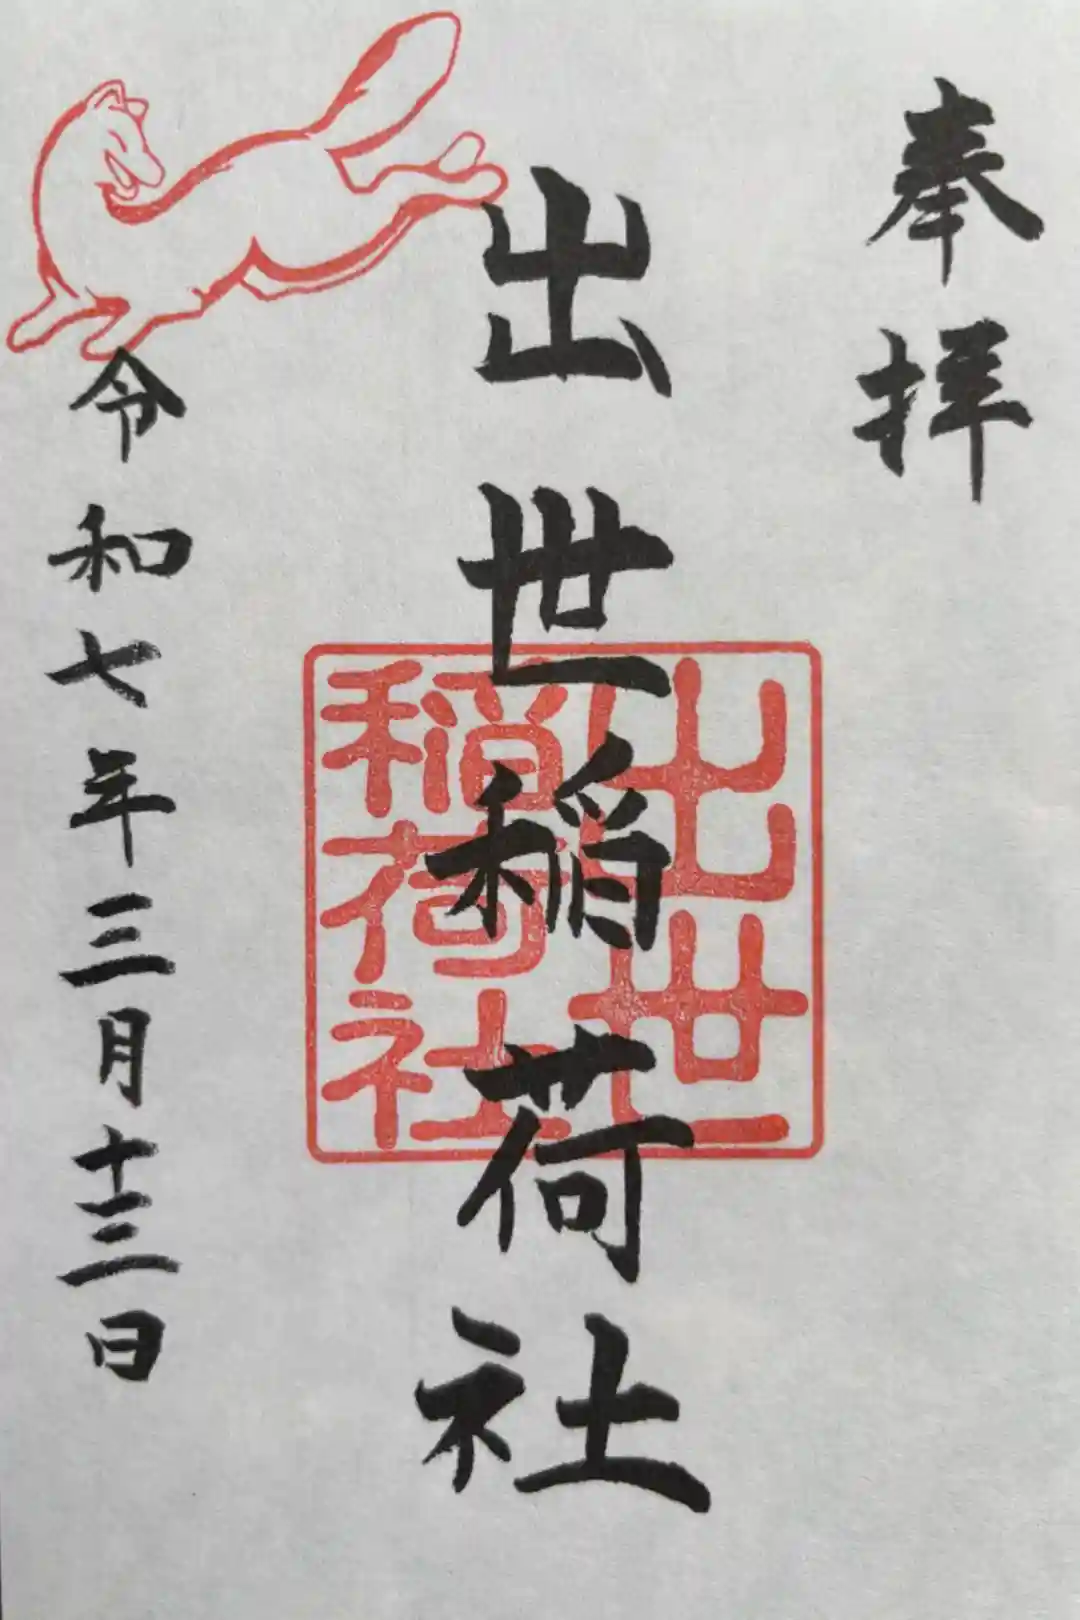 奉拝
出世稲荷社
出世
稲荷社
令和七年三月十三日